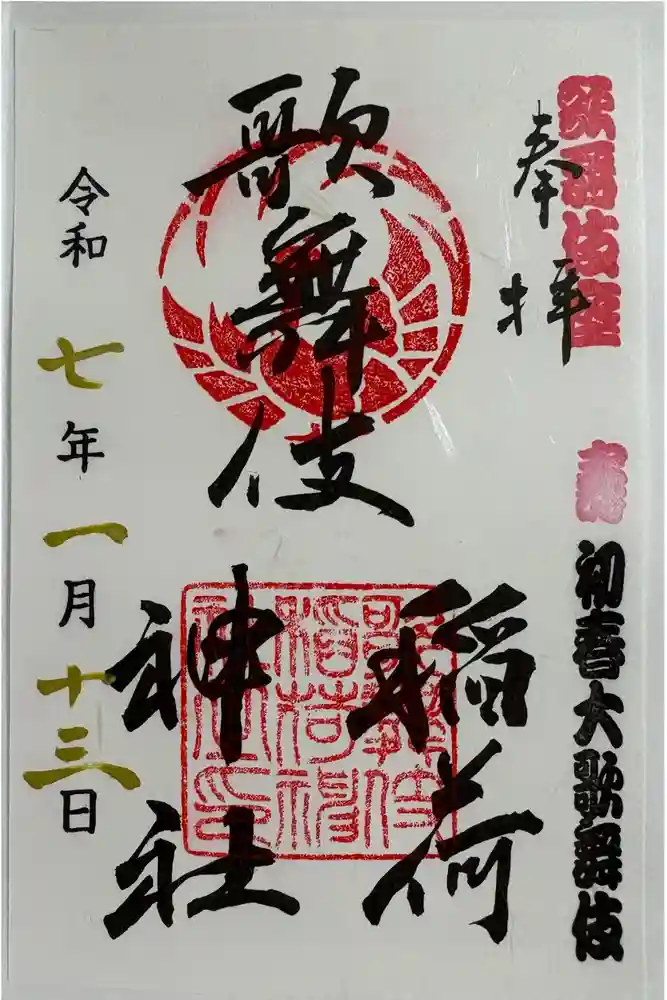 歌舞伎座
奉拝
壽
初春大歌舞伎
歌舞伎
稲荷
神社
歌舞伎
稲荷神
社之印
令和七年一月十三日